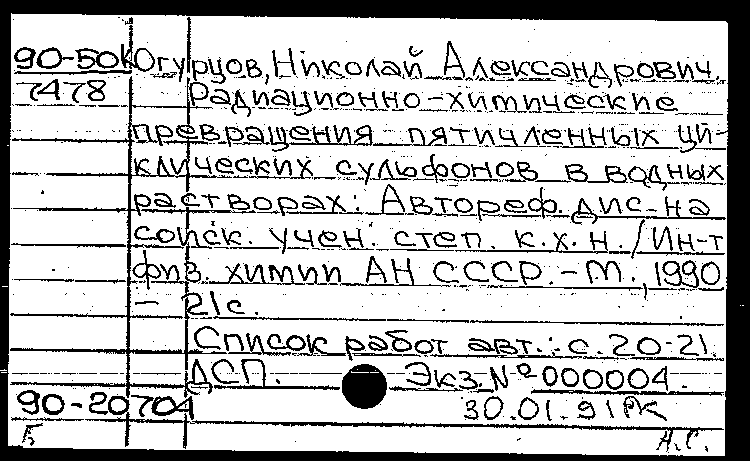 90-50к Огурцов, Николай Александрович.
7478 Радиационно-химические
превращения пятичленных ци-
клических сульфонов в водных
растворах: Автореф. дис. на
соиск. учен. степ. к.х.н. / Ин-т
физ. химии АН СССР. - М., 1990
- 21с.
Список работ авт.: с. 20-21.
ДСП. Экз. № 000004.
90-20704 30.01.91 РК
Б Н.С.